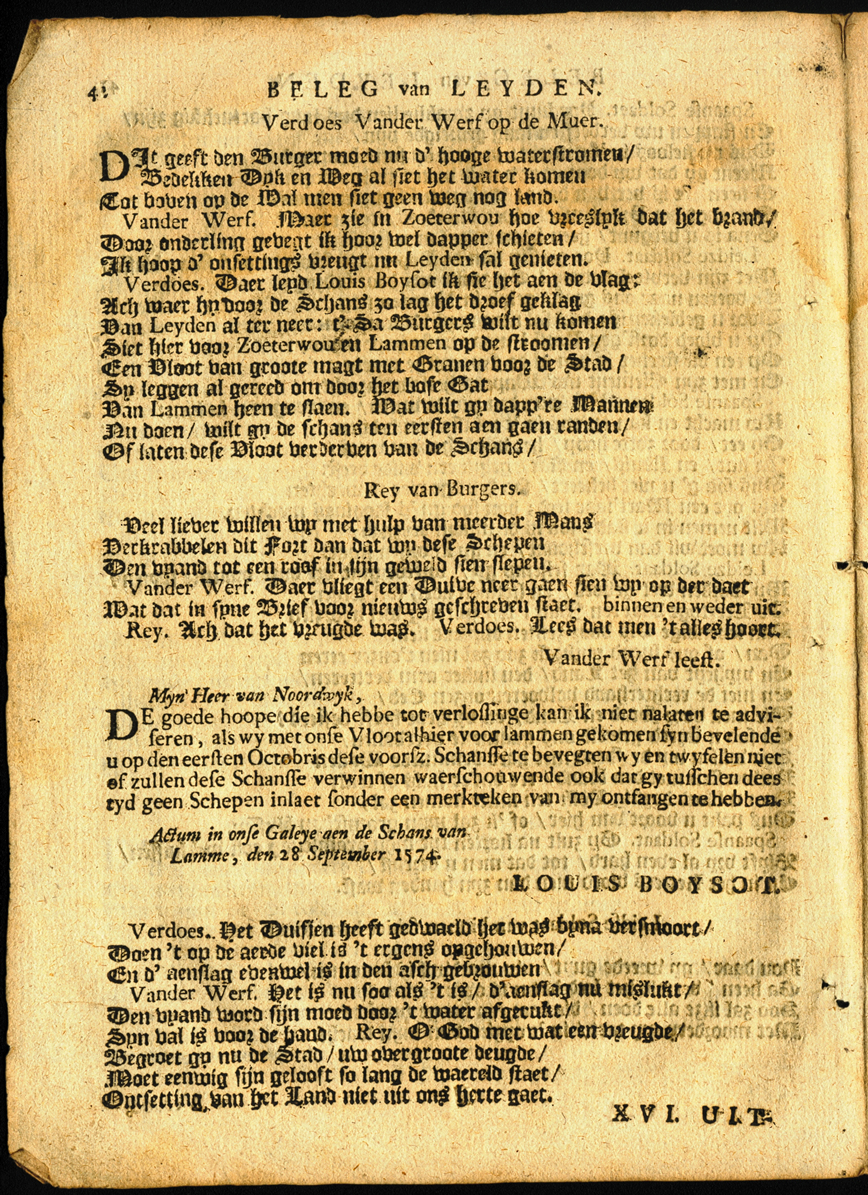 4.
BELEG van LEYDEN.
Verdoes Vander Werf op de Muer.
DIt geeft den Burger moed nu d' hooge waterstromen/
Bedekken Dyk en Weg al siet het water komen
Tot boven op de Wal men siet geen weg nog land.
Vander Werf. Maer zie in Zoeterwou hoe vreeslyk dat het brand/
Door onderling gevegt ik hoor wel dapper schieten/
Ik hoop d' onsettings vreugt nu Leyden sal genieten.
Verdoes. Daer leyd Louis Boysot ik sie het aen de vlag:
Ach waer hy door de Schans zo lag het droef geklag
Van Leyden al ter neer: t' Sa Burgers wilt nu komen
Siet hier voor Zoeterwou en Lammen op de stroomen/
Een Vloot van groote magt met Granen voor de Stad/
Sy leggen al gereed om door het bose Gat
Van Lammen heen te slaen. Wat wilt gy dapp're Mannen
Nu doen/ wilt gy de schans ten eersten aen gaen randen/
Of laten dese Vloot verderven van de Schans/
Rey van Burgers.
Veel liever willen wy met hulp van meerder Mans
Verkrabbelen dit Fort dan dat wy dese Schepen
Den vyand tot een roof in sijn geweld sien slepen.
Vander Werf. Daer vliegt een Duive neer gaen sien wy op der daet
Wat dat in syne Brief voor nieuws geschreven staet. binnen en weder uit.
Rey. Ach dat het vreugde was. Verdoes. Lees dat men 't alles hoort.
Vander Werf leest.
Myn Heer van Noordwyk,
DE goede hoope die ik hebbe tot verlossinge kan ik niet nalaten te advi-
seren, als wy met onse Vloot alhier voor lammen gekomen syn bevelende
u op den eersten Octobris dese voorsz. Schansse te bevegten wy en twyfelen niet
of zullen dese Schansse verwinnen waerschouwende ook dat gy tusschen dees
tyd geen Schepen inlaet sonder een merkteken van my ontfangen te hebben.
Actum in onse Galeye aen de Schans van
Lamme, den 28 September 1574.
LOUIS BOYSOT.
Verdoes. Het Duifjen heeft gedwaeld het was byna versmoort/
Doen 't op de aerde viel is 't ergens opgehouwen/
En d' aenslag evenwel is in den asch gebrouwen
Vander Werf. Het is nu soo als 't is/ d' aenslag nu mislukt/
Den vyand word sijn moed door 't water afgerukt/
Syn val is voor de hand. Rey. O God met wat een vreugde/
Begroet gy nu de Stad/ uw overgroote deugde/
Moet eeuwig sijn gelooft so lang de waereld staet/
Ontsetting van het Land niet uit ons herte gaet.
XVI. UIT-